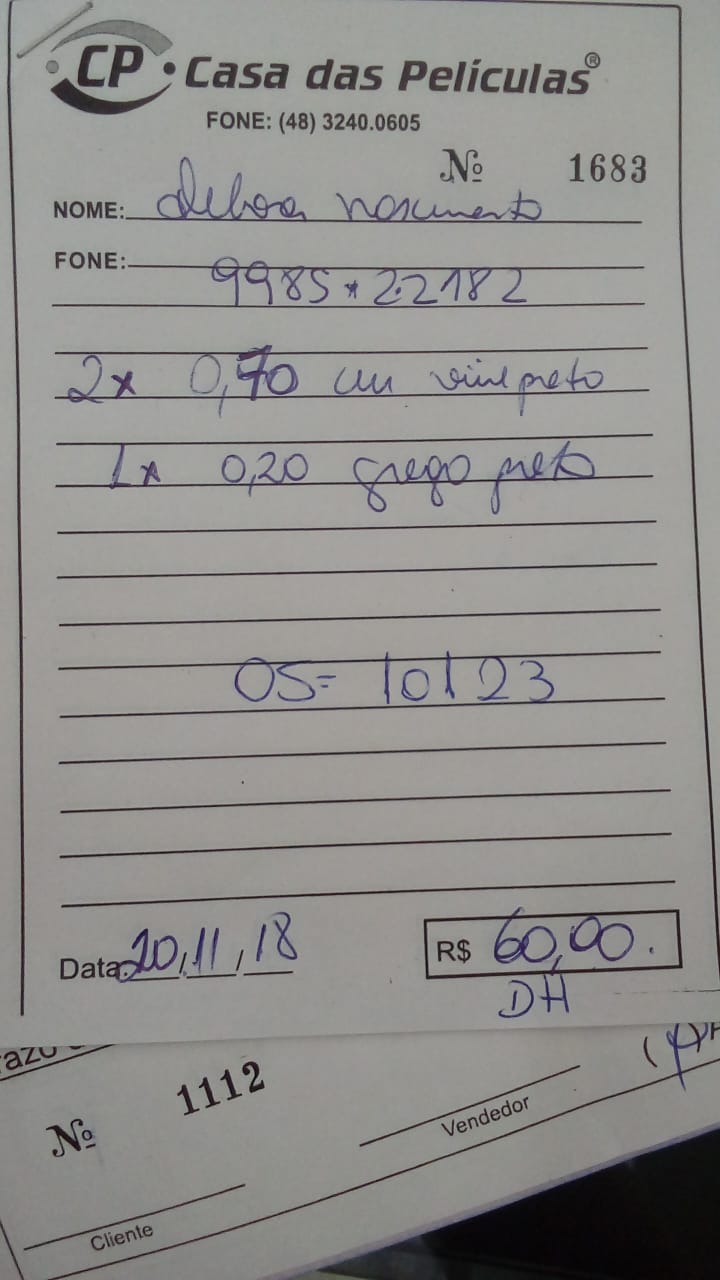 CP • Casa das Películas®
FONE: (48) 3240.0605
Nº 1683
NOME: Debora nascimento
FONE: 9985*2.2182
2x 0,70 cm vinil preto
1x 0,20 grego preto
OS= 10123
Data: 20/11/18
R$ 60,00.
DH
Nº 1112
Vendedor
Cliente